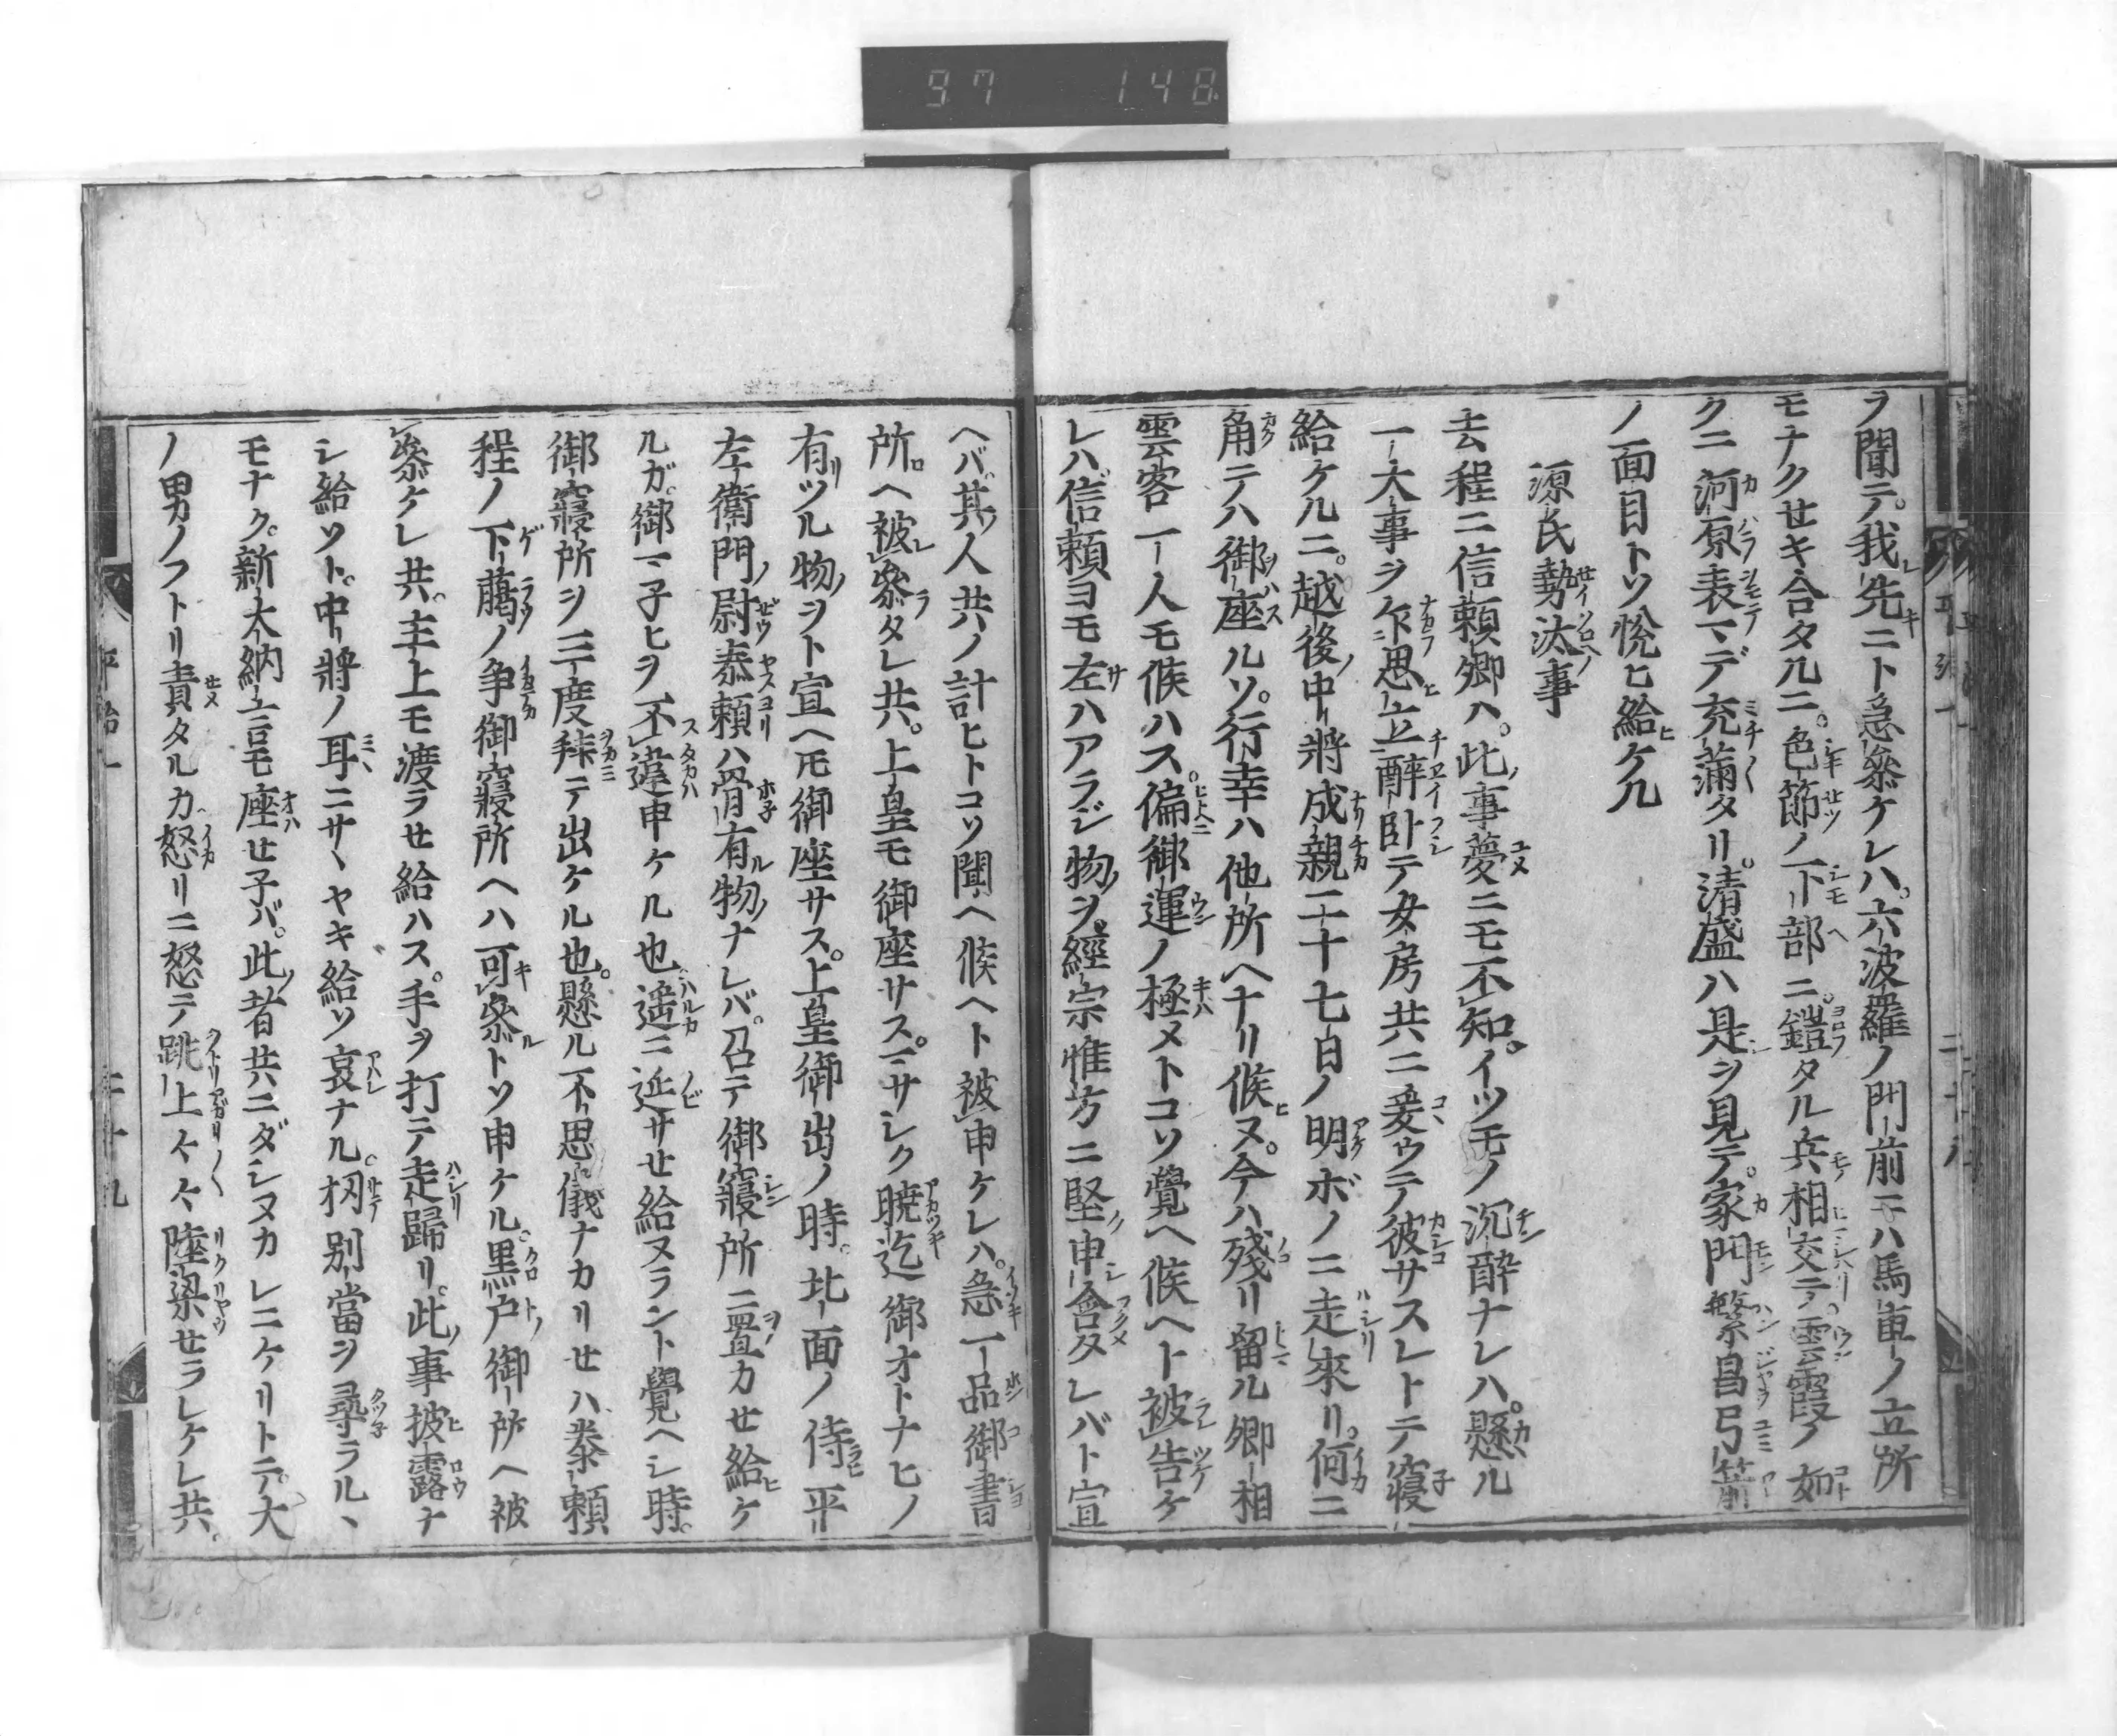 97 148
ヲ聞テ。我先ニト急参ケレハ。六波羅ノ門前ニハ馬車ノ立所
モナクセキ合タルニ。色節ノ下部ニ。鎧タル兵相交テ。雲霞ノ如
クニ河原表マデ充満タリ。清盛ハ是ヲ見テ。家門繁昌弓箭
ノ面目トソ悦ヒ給ケル
源氏勢汰事
去程ニ信頼卿ハ。此事夢ニモ不知。イツモノ沉酔ナレハ。懸ル
一大事ヲ乍思立酔臥テ女房共ニ爰ウテ彼サスレトテ寝
給ケルニ。越後中将成親二十七日ノ明ボノニ走來リ。何ニ
角テハ御座ルソ。行幸ハ他所ヘナリ候ヌ。今ハ残リ留ル卿相
雲客一人モ候ハス。偏御運ノ極メトコソ覺ヘ候ヘト被告ケ
レハ信頼ヨモ左ハアラジ物ヲ。經宗惟方ニ堅申含タレバト宣
ヘバ。其人共ノ計ヒトコソ聞ヘ候ヘト被申ケレハ。急一品御書
所ヘ被参タレ共。上皇モ御座サス。マサシク暁迄御オトナヒノ
有ツル物ヲト宣ヘ圧御座サス。上皇御出ノ時。北面ノ侍平
左衛門尉泰頼ハ骨有物ナレバ。召テ御寝所ニ置カセ給ケ
ルガ。御マ子ヒヲ不違申ケル也。遙ニ延サセ給ヌラント覺ヘシ時。
御寝所ヲ三度拜テ出ケル也。懸ル不思儀ナカリセハ泰頼
程ノ下﨟ノ争御寝所ヘハ可参トソ申ケル。黒戸御所ヘ被
参ケレ共。主上モ渡ラセ給ハス。手ヲ打テ走歸リ。此事披露ナ
シ給ソト。中将ノ耳ニサヽヤキ給ソ哀ナル。扨別當ヲ尋ラル、
モナク。新大納言モ座セ子バ。此者共ニダシヌカレニケリトテ。大
ノ男ノフトリ責タルカ。怒リニ怒テ跳上々々陸梁セラレケレ共。